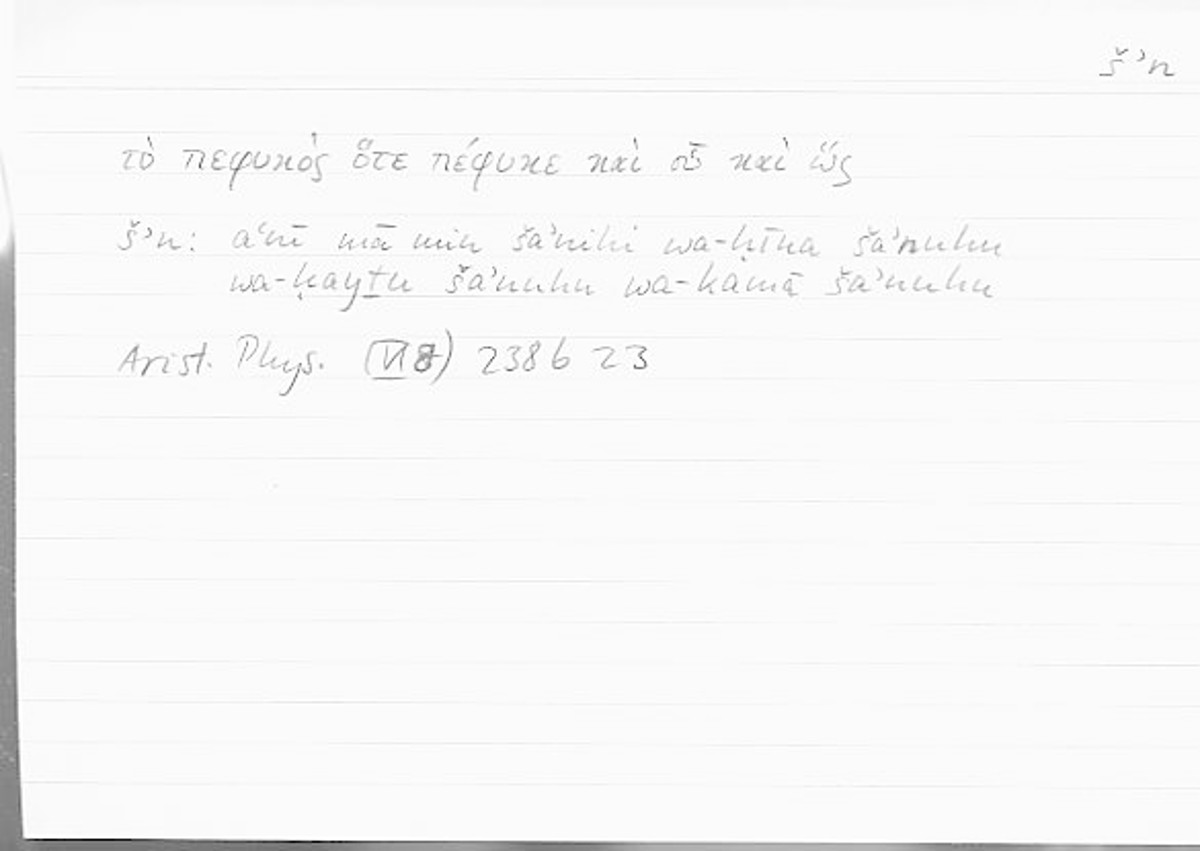 šʾn
τὸ πεφυκός ὅτε πέφυκε καὶ οὗ καὶ ὥς
šʾn: aʿnī mā min šaʾnihi wa-ḥīna šaʾnuhu
wa-ḥayṯu šaʾnuhu wa-kamā šaʾnuhu
Arist. Phys. (VI 8) 238b 23